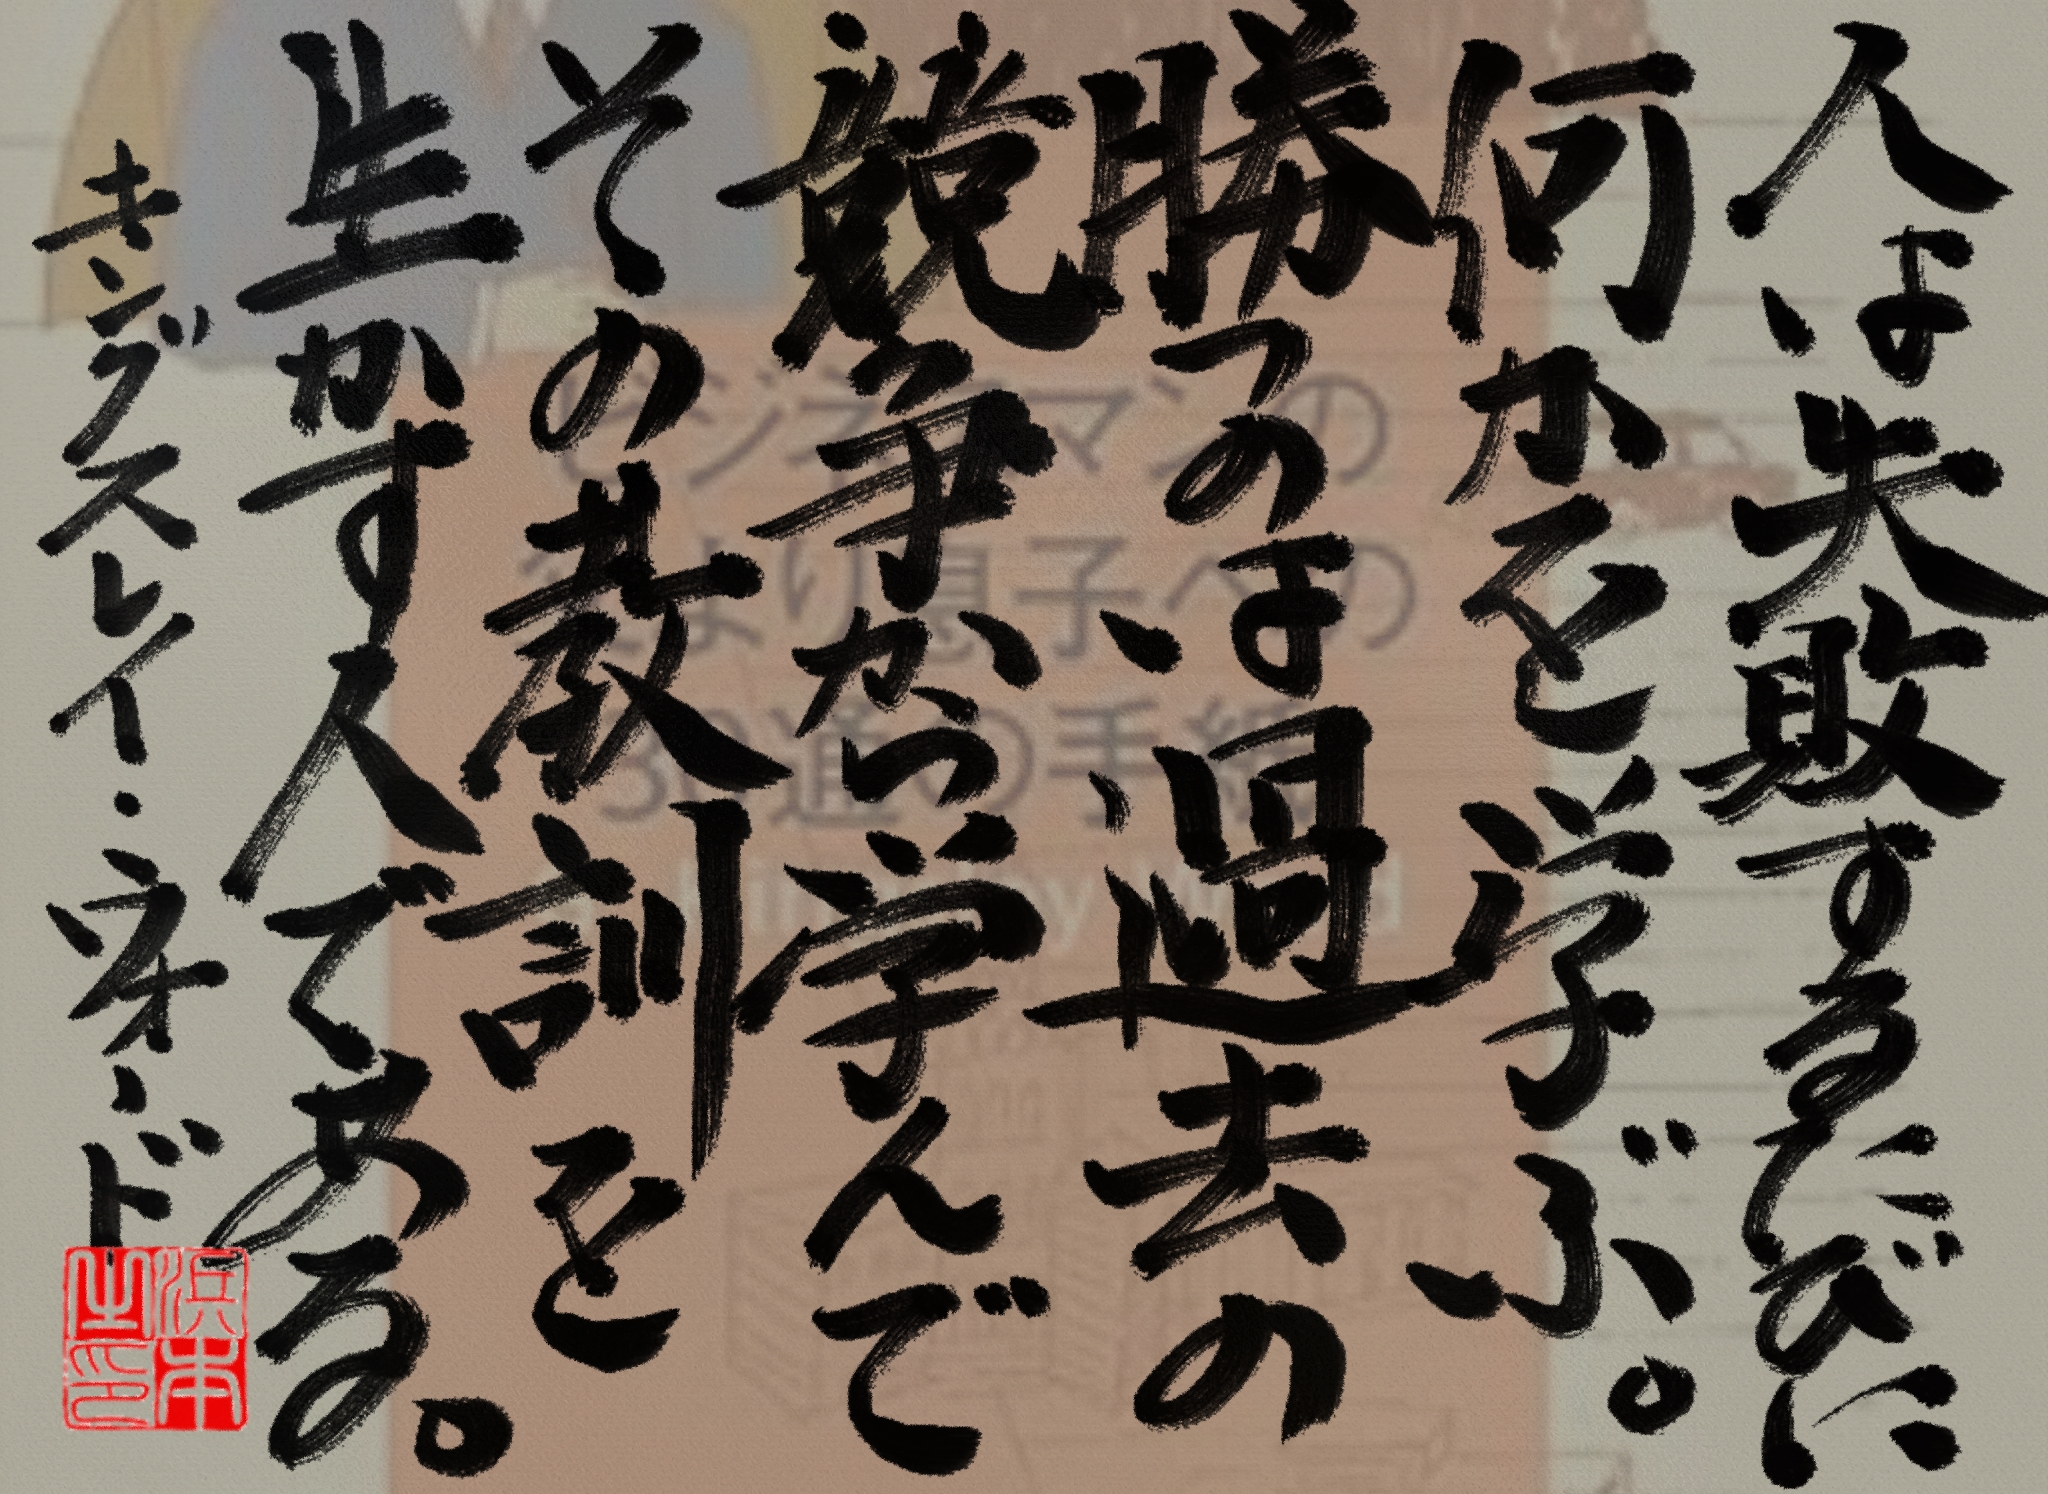 人は失敗するたびに
何かを学ぶ。
勝つのは過去の
競争から学んで
その教訓を
生かす人である。
キングスレイ・ウォード
ビジネスマンの
父より息子への
30通の手紙